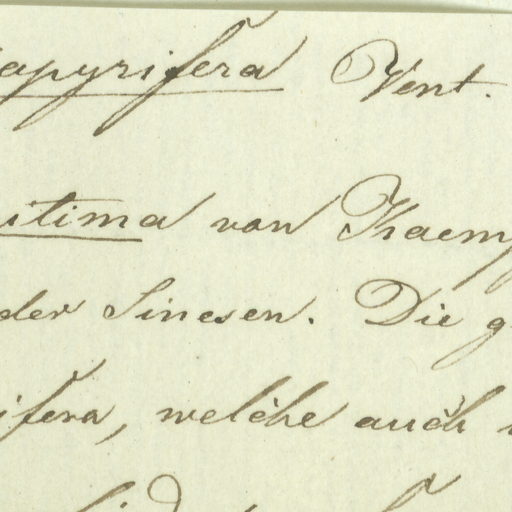 papyrifera Vent.
itima van Kaemp
der Sinesen. Die g
ifera, welche auch